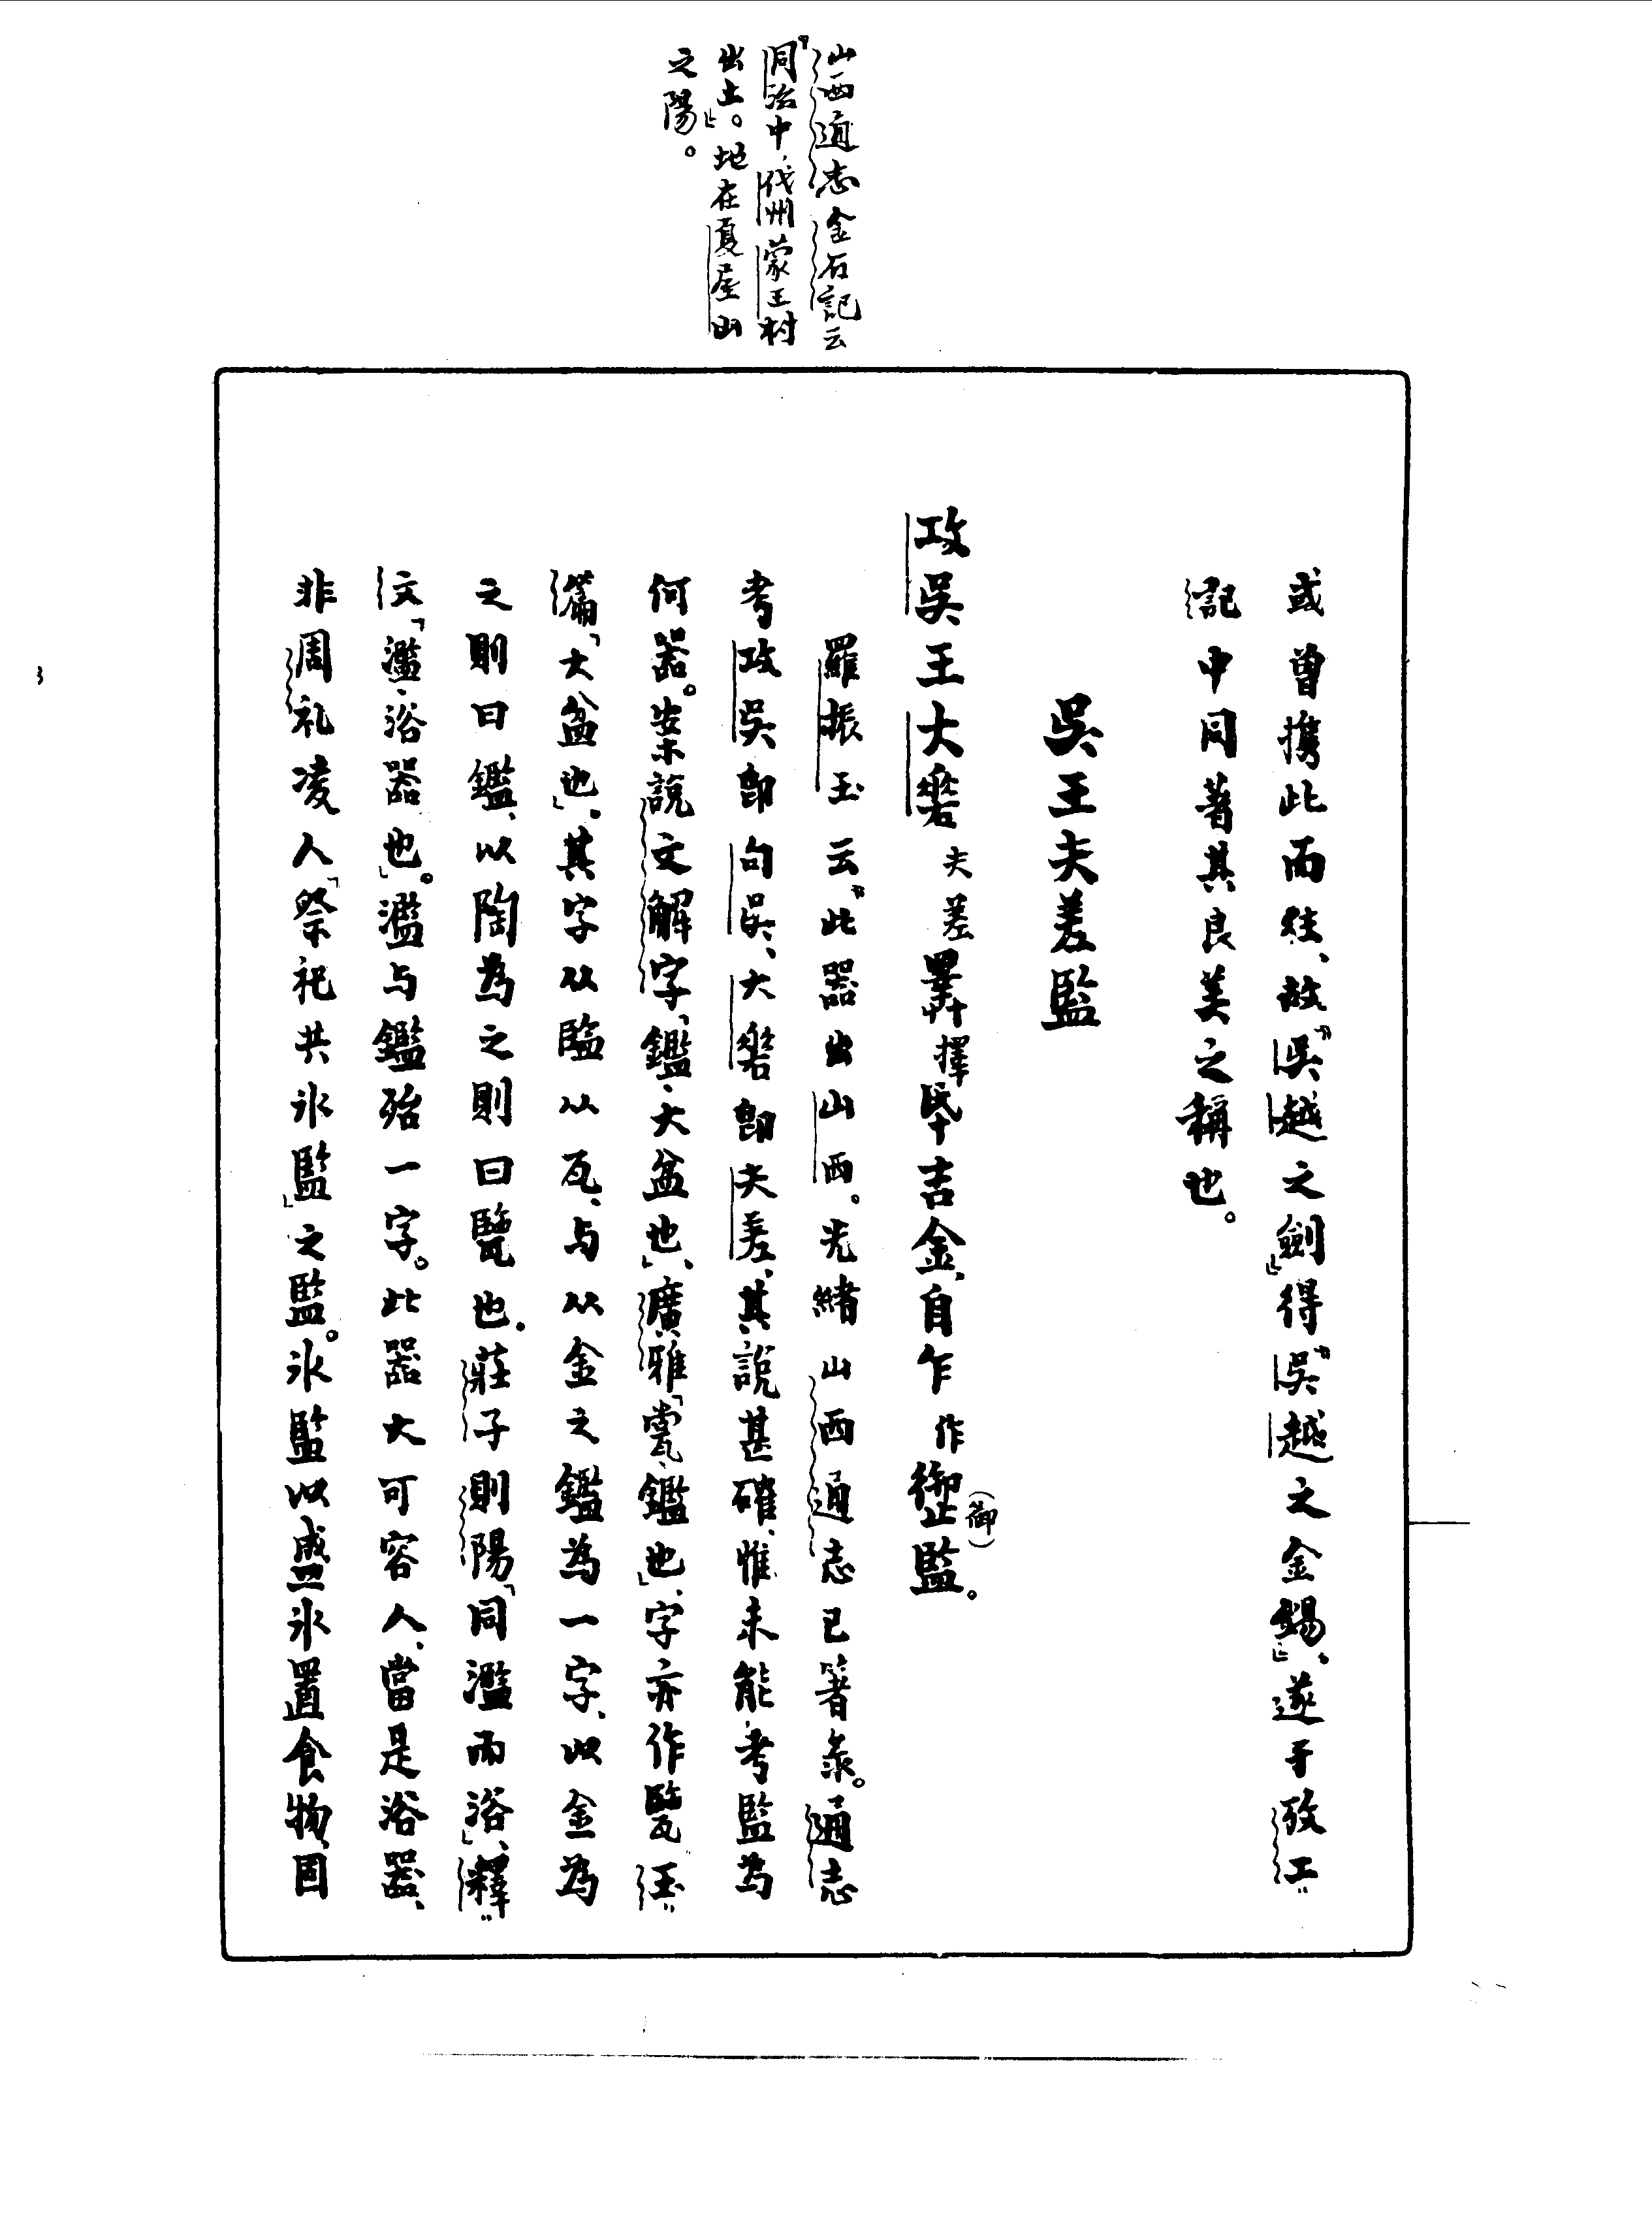 山西通志金石記云
『同治中、代州蒙王村
出土』。地在夏屋山
之陽。
或曾攜此而往、故『吳越之劍』得『吳越之金錫』、遂于攷工
記中同著其良美之稱也。
吳王夫差監
攻吳王大差夫差𢍰擇氒吉金、自乍作御(御)監。
羅振玉云『此器出山西。光緒山西通志已箸彔。通志
考攻吳即句吳、大差即夫差、其說甚確、惟未能考監為
何器。案說文解字「鑑、大盆也」、廣雅「甇、鑑也」、字亦作㼭、玉
篇「大盆也」、其字从監从瓦、与从金之鑑為一字、以金為
之則曰鑑、以陶為之則曰㼭也。莊子則陽「同濫而浴」、釋
文「濫、浴器也」。濫与鑑殆一字。此器大可容人、當是浴器、
非周礼凌人「祭祀共氷監」之監。氷監以盛氷置食物、固